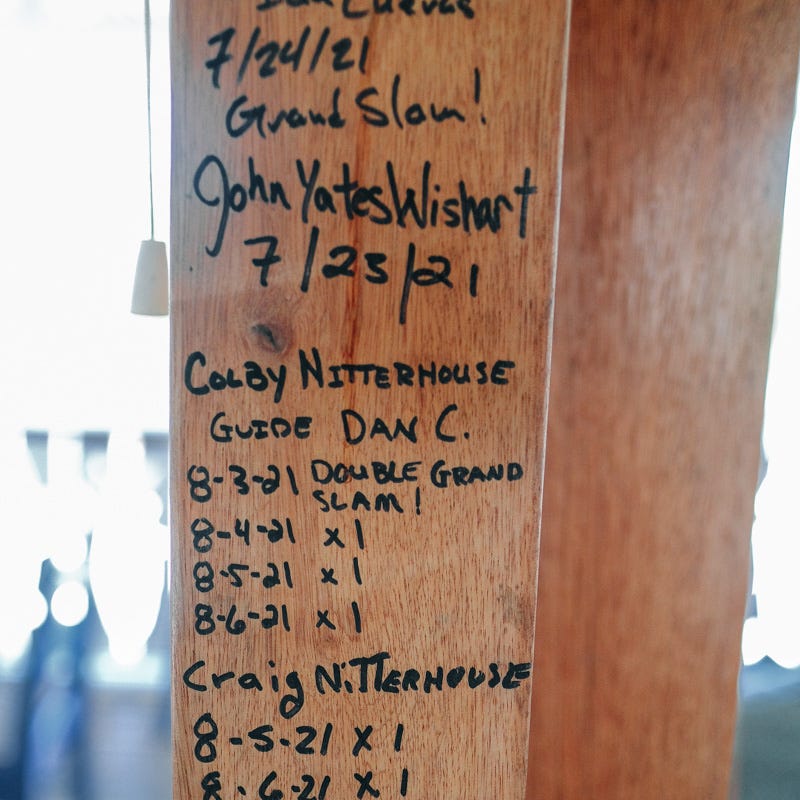 Cuevas
7/24/21
Grand Slam!
John Yates Wishart
7/25/21
COLBY NITTERHOUSE
GUIDE DAN C.
8-3-21 DOUBLE GRAND
SLAM!
8-4-21 x 1
8-5-21 x 1
8-6-21 x 1
Craig NITTERHOUSE
8-5-21 x 1
8-6-21 x 1